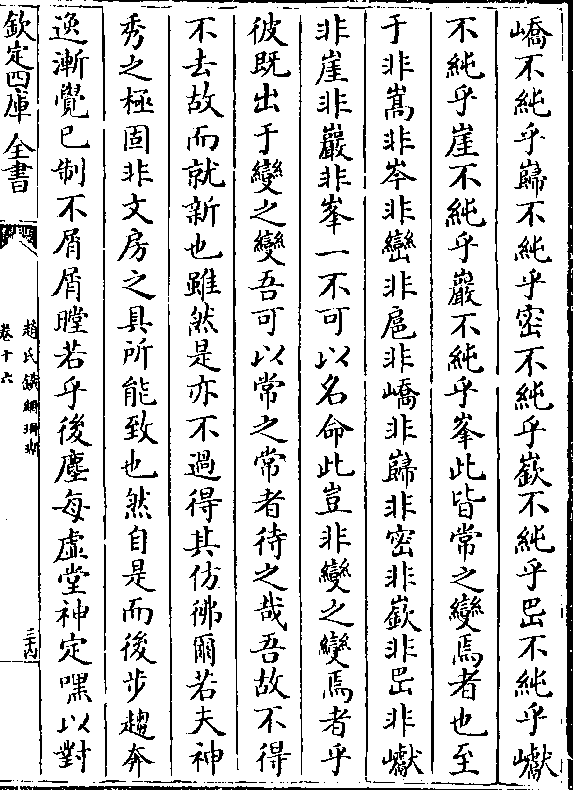 嶠不純乎巋不純乎密不純乎嶔不純乎㞳不純乎巘
不純乎崖不純乎巖不純乎峯此皆常之變焉者也至
于非嵩非岑非巒非扈非嶠非巋非密非嶔非㞳非巘
非崖非巖非峯一不可以名命此豈非變之變焉者乎
彼既出于變之變吾可以常之常者待之哉吾故不得
不去故而就新也雖然是亦不過得其仿彿爾若夫神
秀之極固非文房之具所能致也然自是而後步趨奔
逸漸覺已制不屑屑瞠若乎後塵每虛堂神定嘿以對
欽定四庫全書
趙氏鐵網珊瑚
卷十六
三十四